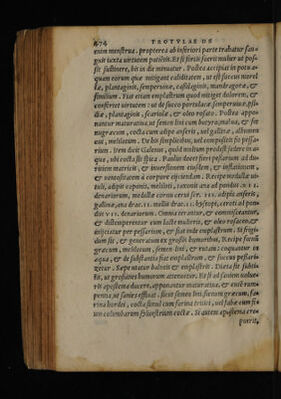 474 TROTVLAE DE
enim menstrua. propterea ab inferiori parte trahatur san-
guis iuxta virtutem patientis. Et si forsã fuerit mulier vt pos-
sit sustinere, bis in die minuatur. Postea accipiat in potu a-
quam eorum quæ mitigant caliditatem, vt est succus morel
læ, plantaginis, semperuiuæ, cassilaginis, mandragoræ, &
similium. Fiat etiam emplastrum quod mitiget dolorem, &
confortet virtutem: vt de succo portulacæ semperuiuæ, psi-
diæ, plantaginis, scariolæ, & oleo rosato. Postea appo-
nantur maturatiua, vt semen lini cum butyro, malua, & fœ
nugræcum, cocta cum adipe anseris, vel gallinæ, albumen
oui, melilotum. De his simplicibus, vel compositis fit pessa-
rium. Item dicit Galenus, quòd multum prodest sedere in a-
qua, vbi cocta sit spica. Paulus docet fieri pessarium ad du-
ritiem matricis, & inuersionem eiusdem, & inflationem,
& ventositatem à corpore eijciendam. Recipe medullæ vi-
tuli, adipis caponis, meliloti, taxonis ana ad pondus
denariorum, medullæ ceruæ VIII. adipis anseris,
gallinæ, ana drac. II. mellis drac. II. hysopi, cerotī ad pon-
dus VII. denariorum. Omnia terantur, & commisceantur,
& distemperentur cum lacte mulieris, & oleo rosaceo, &
inijciatur per pessarium, & fiat inde emplastrum. Si frigi-
dum sit, & generatum ex grossis humoribus. Recipe fœnũ
græcum, melilotum, semen lini, & rutam: coquantur in
aqua, & de substantia fiat emplastrum, & succus pessari-
zetur. Sæpe vtatur balneis & emplastris. Diæta sit subtilis
Et, vt grossiones humorum attenuetur. Et si ad saniem volue-
rit apostema ducere, apponantur maturatiua, & cutē rum-
pentia, vt sanies effluat, sicut semen lini, fœnum græcum, fa-
rina hordei, cocta simul cum farina tritici, vel fabæ cum fi-
mo columbarum syluestrium coctæ. Si autem apostema cre-
puerit,